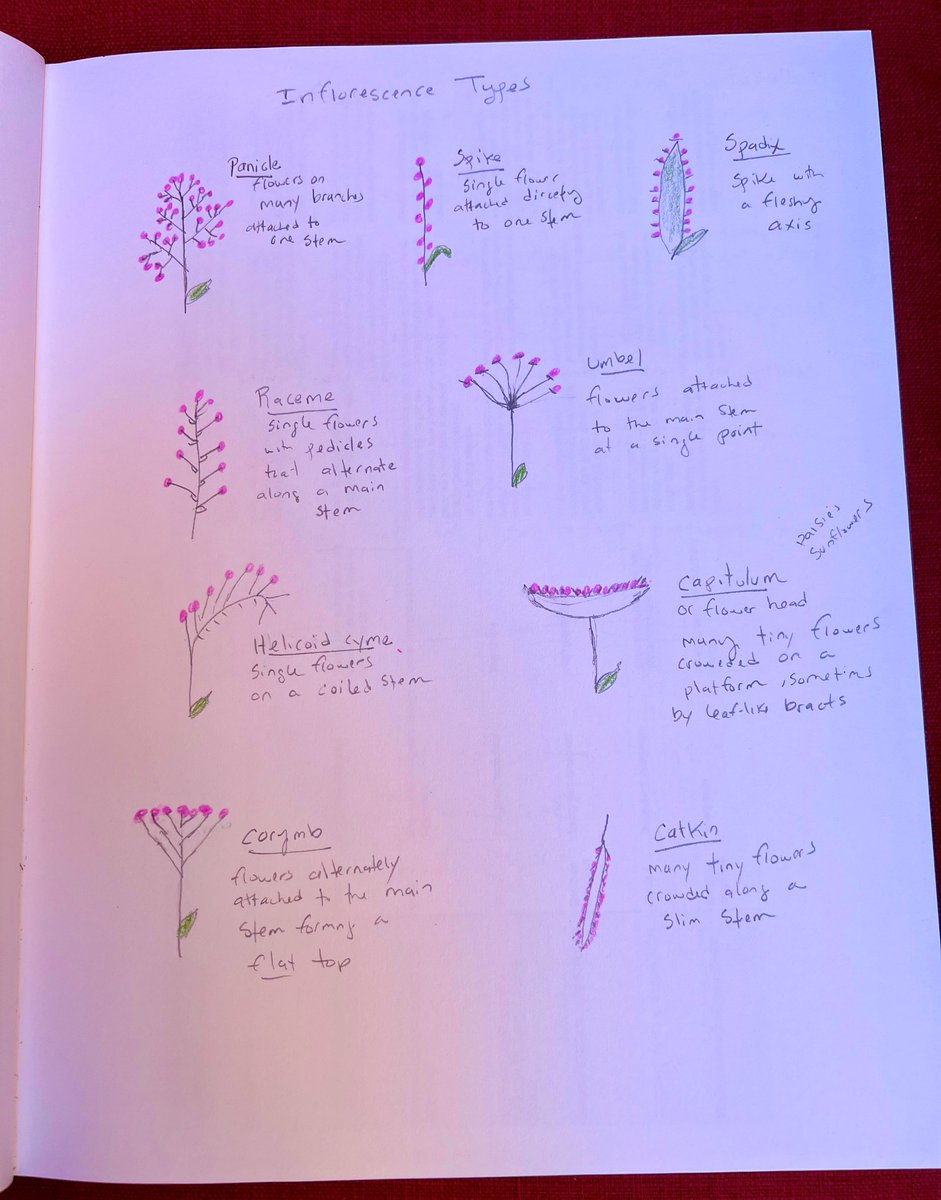 Inflorescence Types
Panicle
flowers on
many branches
attached to
one stem
Spike
Single flower
attached directly
to one stem
Spadix
Spike with
a fleshy
axis
Raceme
Single flowers
with pedicles
that alternate
along a main
stem
Umbel
flowers attached
to the main stem
at a single point
Helicoid cyme
Single flowers
on a coiled stem
Daisie's
Sunflowers
Capitulum
or flower head
many tiny flowers
crowded on a
platform, sometims
by leaf-like bracts
Corymb
flowers alternately
attached to the main
stem formng a
flat top
Catkin
many tiny flowers
crowded along a
slim stem